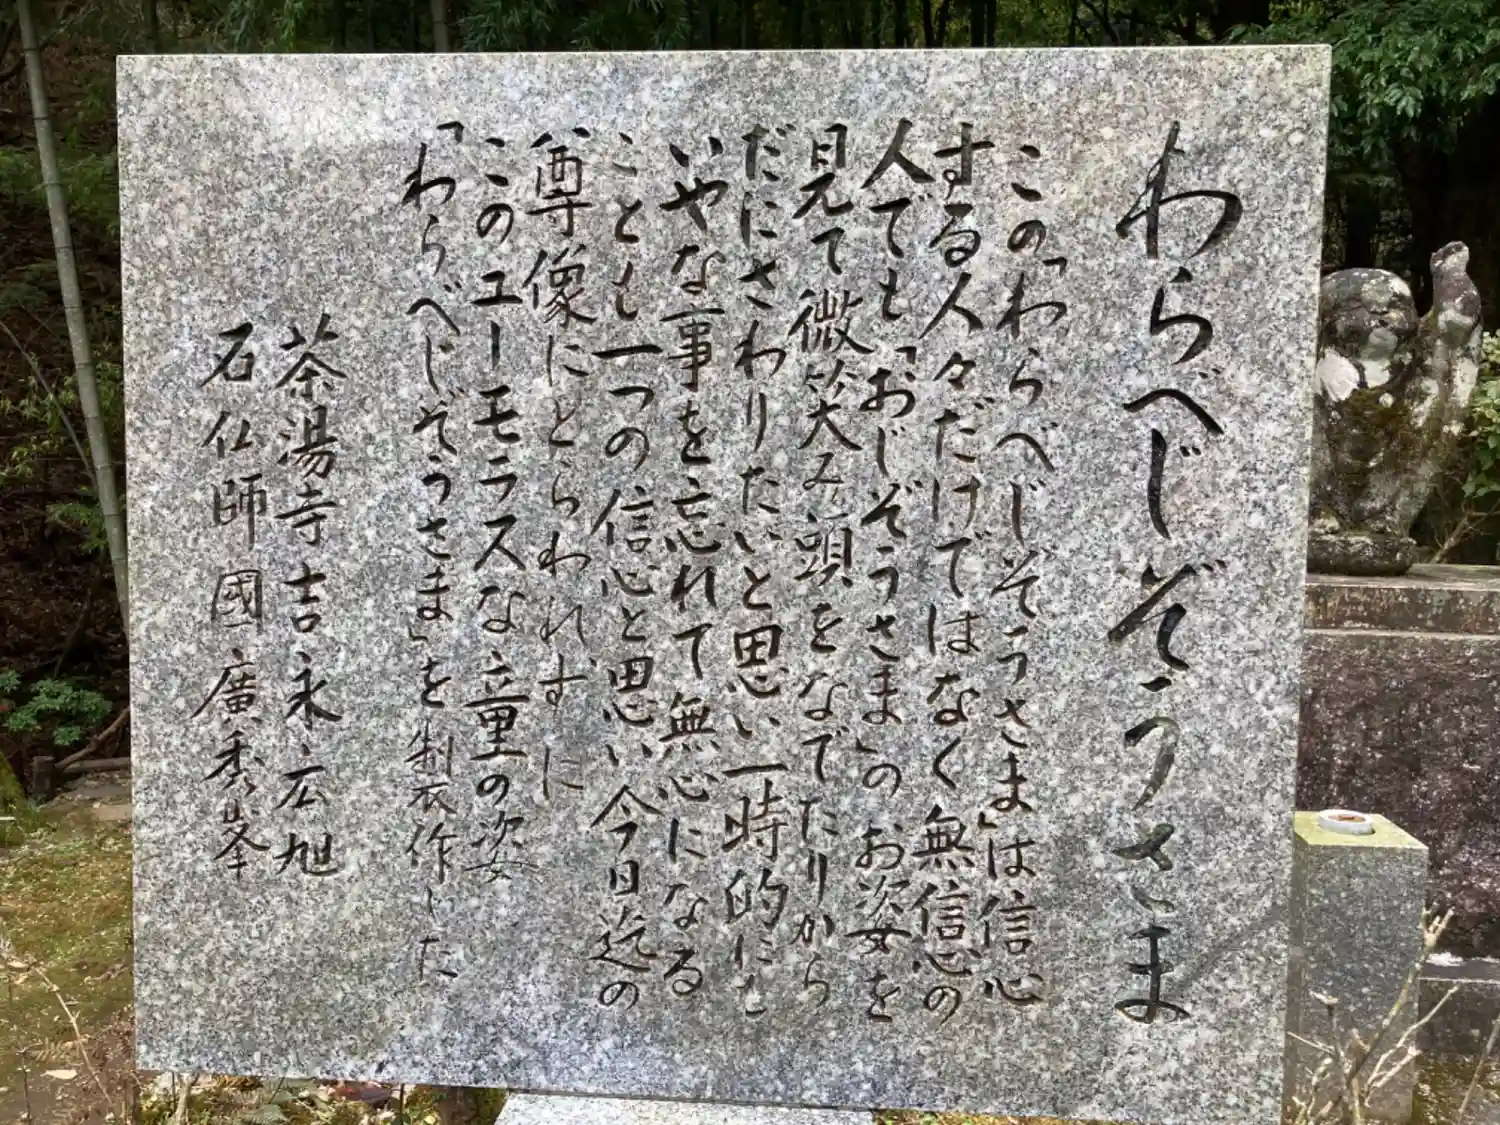 わらべじぞうさま
この「わらべじぞうさま」は信心
する人々だけではなく無信心の
人でも「おじぞうさま」のお姿を
見て微笑み、頭をなでたりから
だにさわりたいと思い一時的にも
いやな事を忘れて無心になる
ことも一つの信心と思い今日迄の
尊像にとらわれずに
このユーモラスな童の姿
「わらべじぞうさま」を制作した
茶湯寺吉永広旭
石仏師國廣秀峯